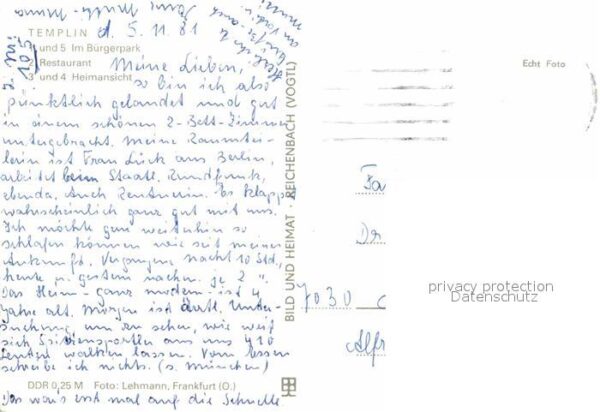 TEMPLIN d. 5. 11. 81
1 und 5 Im Bürgerpark
2 Restaurant
3 und 4 Heimansicht
105
Meine Lieben,
so bin ich also
pünktlich gelandet und gut
in einem schönen 2-Bett-Zimmer
untergebracht. Meine Raumtei-
lerin ist Frau Lück aus Berlin,
arbeitet beim Staatl. Rundfunk,
ebenda. Auch Rentnerin. Es klappt
wahrscheinlich ganz gut mit uns.
Ich möchte gern weiterhin so
schlafen können wie seit meiner
Ankunft. Vergangene Nacht 10 Std.,
heute u. gestern nachm. je 2 ".
Das Heim - ganz modern - ist 4
Jahre alt. Morgen ist ärztl. Unter-
suchung, um zu sehen, wie weit
sich aus uns 410
lassen. Vom Essen
schreibe ich nichts. (s. München)
Das wär's erst mal auf die Schnelle.
DDR 0,25 M Foto: Lehmann, Frankfurt (O.)
BILD UND HEIMAT REICHENBACH (VOGTL)
Echt Foto
Fa
Dr
7030
Alfr
privacy protection
Datenschutz